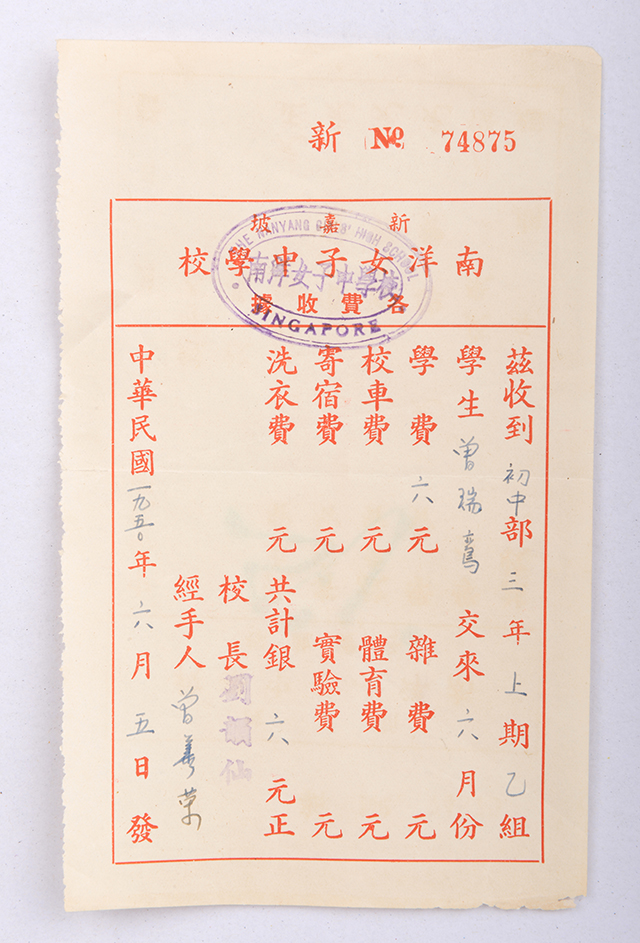 新 No 74875
新嘉坡
南洋女子中學校
各費收據
THE NANYANG GIRLS' HIGH SCHOOL
南洋女子中學校
SINGAPORE
茲收到初中部三年上期乙組
學生曾瑞鸞交來六月份
學費六元 雜費元
校車費元 體育費元
寄宿費元 實驗費元
洗衣費元 共計銀六元正
校長劉韻仙
經手人曾善榮
中華民國一九五〇年六月五日發